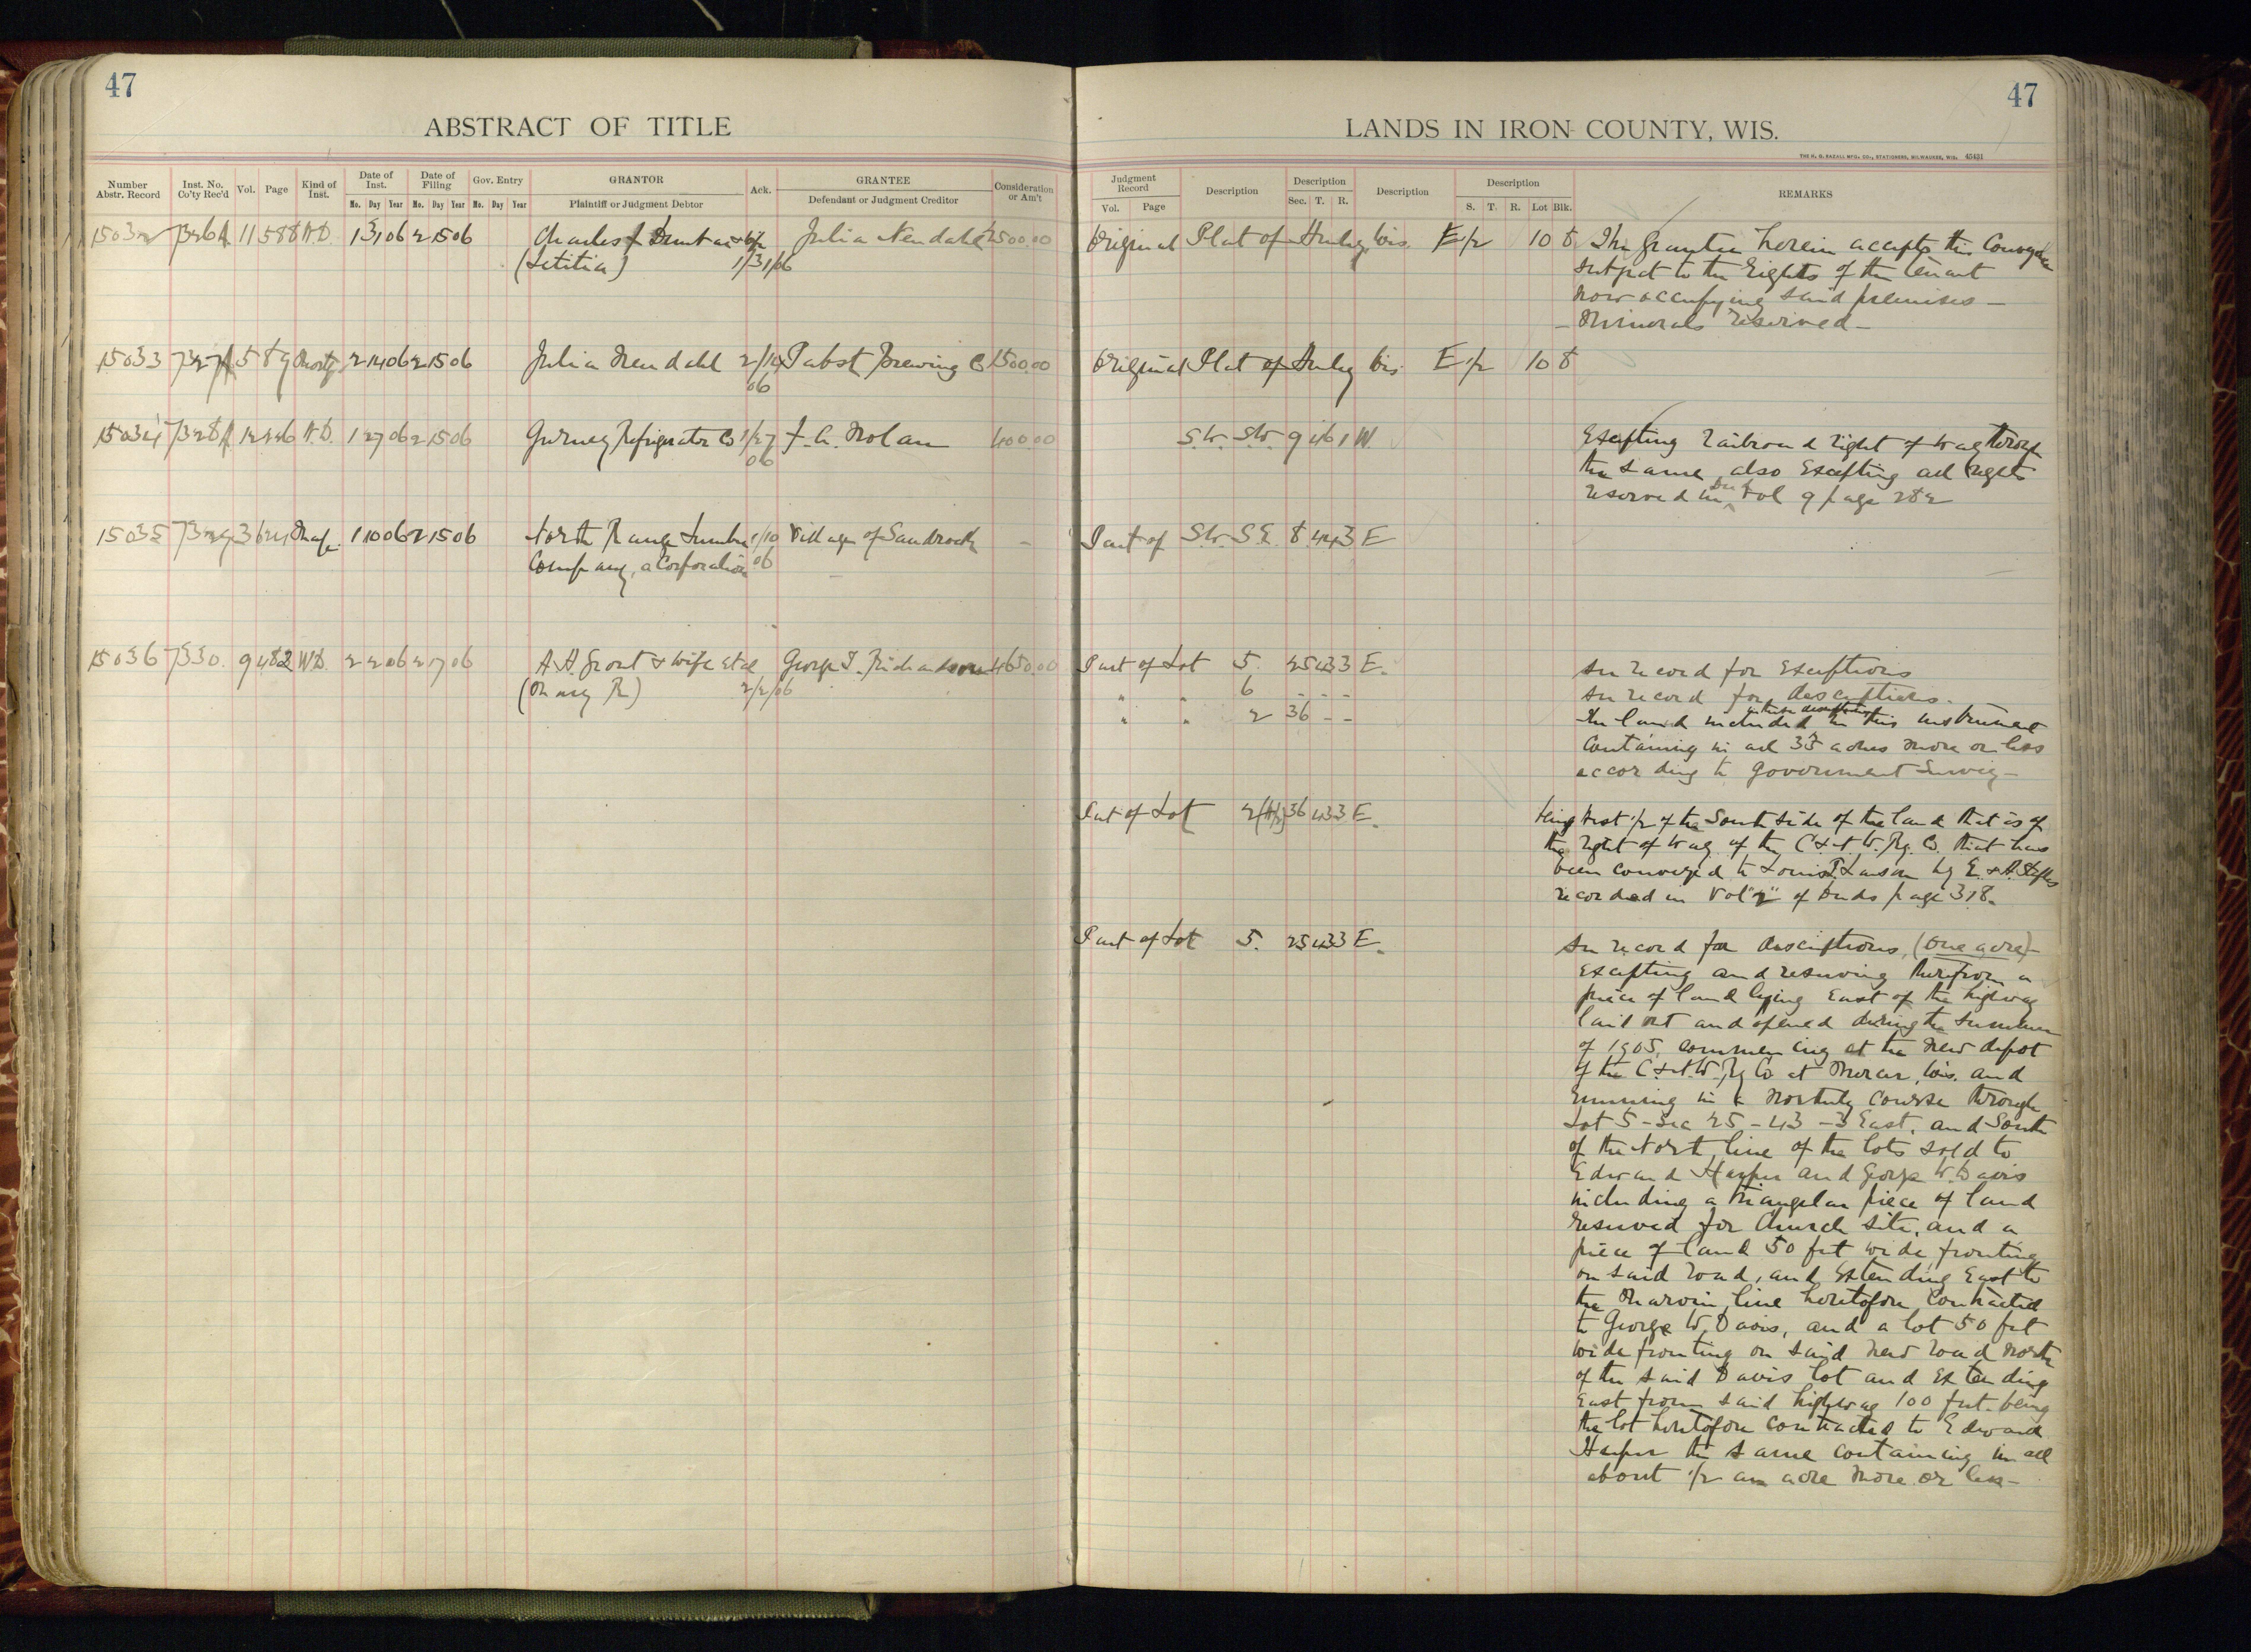 47
ABSTRACT OF TITLE
Number Abstr. Record
Inst. No. Co'ty Rec'd
Vol.
Page
Kind of Inst.
Date of Inst.
Date of Filing
Gov. Entry
GRANTOR
Plaintiff or Judgment Debtor
Ack.
GRANTEE
Defendant or Judgment Creditor
Consideration or Am't
Mo. Day Year Mo. Day Year Mo. Day Year
15032 7326 11 588 W.D. 1 31 06 2 15 06 Charles & wife Julia Nendahl 2500.00
(Letitia) 1/31/06
15033 7327 589 Mortg. 2 14 06 2 15 06 Julia Nendahl 2/14 Pabst Brewing Co 1500.00
06
15034 7328 12 226 W.D. 1 27 06 2 15 06 Gurney Refrigerator Co 1/27 J. A. Nolan 400.00
06
15035 7329 3 Map 1 10 06 2 15 06 North Range Lumber 1/10 Village of Sandrock
Company, a Corporation 06
15036 7330. 9 482 W.D. 2 2 06 2 17 06 A.A. Grout & wife et al George T. Richardson 4650.00
(Mary R) 2/2/06
47
LANDS IN IRON COUNTY, WIS.
THE H. H. MFG. CO., STATIONERS, MILWAUKEE, WIS. 45431
Judgment Record
Vol. Page
Description
Description
Sec. T. R.
Description
Description
S. T. R. Lot Blk.
REMARKS
Original Plat of Hurley Wis. E 1/2 10 8 The grantee herein accepts this Conveyance
subject to the rights of the tenant
now occupying said premises —
— Minerals reserved —
Original Plat of Hurley Wis. E 1/2 10 8
S.W. S.W. 9 46 1 W. Excepting railroad right of way through
the same, also Excepting all rights
reserved in Vol 9 page 282
Part of S.W. S.E. 8 44 3 E
Part of Lot 5. 25 43 3 E. See record for Exceptions
" " 6 - - - See record for descriptions.
" " 2 36 - - The land included in this instrument
Containing in all 35 acres more or less
according to Government Survey —
Part of Lot 2 36 43 3 E. being West 1/2 of the South side of the land that is of
the right of way of the C & N W. Ry. Co. that has
been conveyed to Louis Larson by E. & A.
recorded in Vol "2" of Deeds page 318.
Part of Lot 5. 25 43 3 E. See record for descriptions, (One acre) —
Excepting and reserving therefrom a
piece of land lying East of the highway
laid out and opened during the summer
of 1905, commencing at the new depot
of the C. & N.W. Ry Co at Mercer, Wis. and
running in a Northerly course through
Lot 5 - Sec 25 - 43 - 3 East. and South
of the North line of the lots sold to
Edward Harper and George W. Davis
including a triangular piece of land
reserved for Church site, and a
piece of land 50 feet wide, fronting
on said road, and Extending East to
the line heretofore contracted
to George W. Davis, and a lot 50 feet
wide fronting on said new road North
of the said Davis lot and Extending
East from said highway 100 feet being
the lot heretofore contracted to Edward
Harper the same containing in all
about 1/2 an acre more or less —